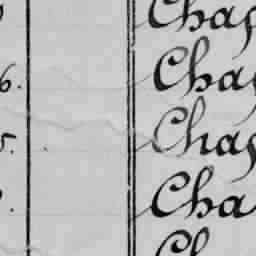 Chap
6. Chap
5. Chap
Cha
Ch